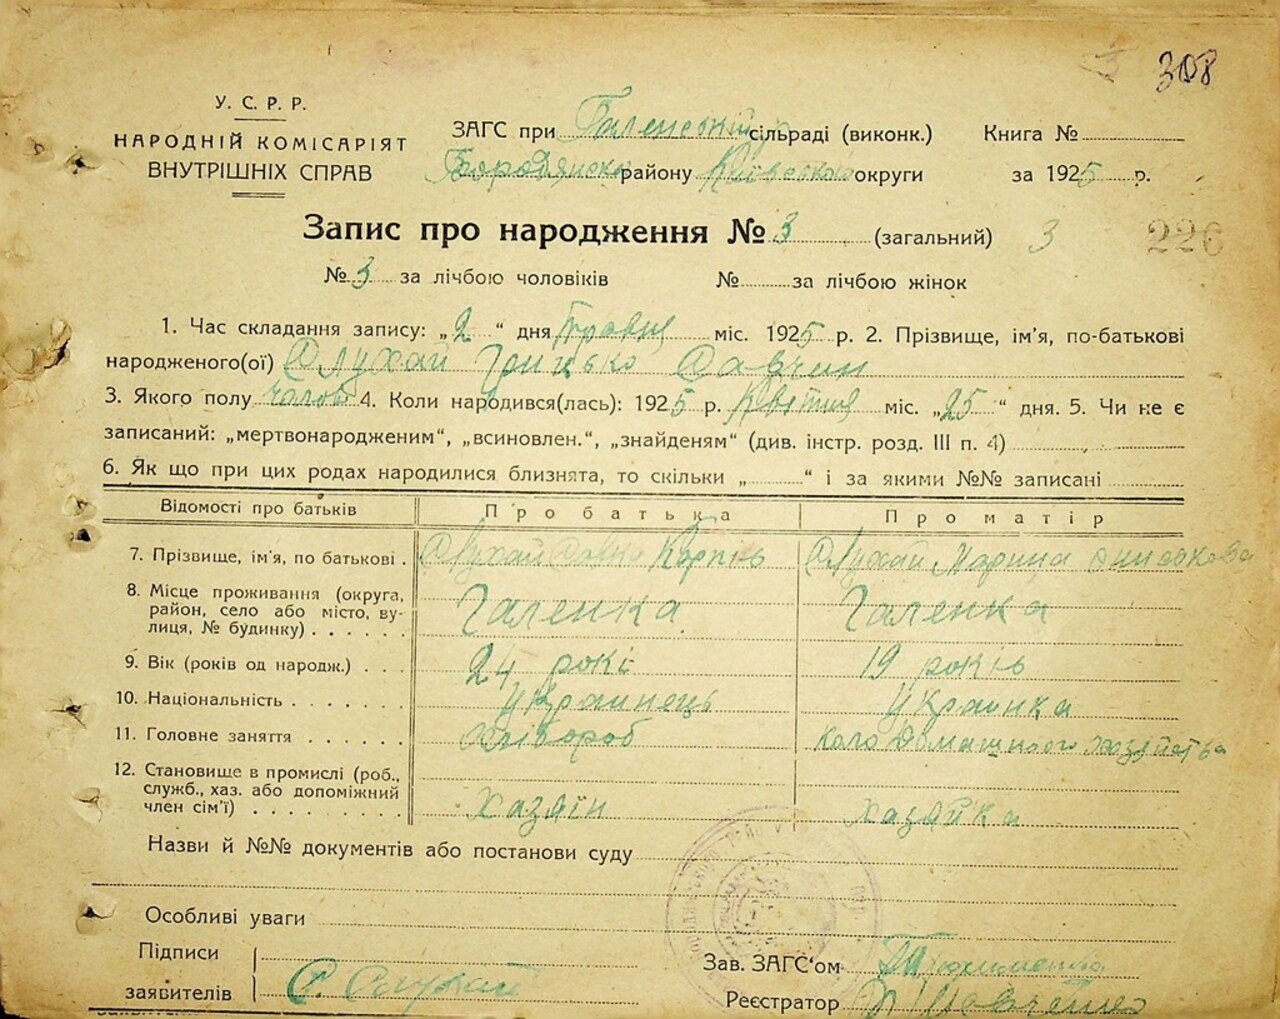 308
У. С. Р. Р.
НАРОДНІЙ КОМІСАРІЯТ
ВНУТРІШНІХ СПРАВ
ЗАГС при Галенській сільраді (виконк.) Книга №
Бородянськ району Київської округи за 1925 р.
Запис про народження № 3 (загальний) 3
226
№ 3 за лічбою чоловіків № за лічбою жінок
1. Час складання запису: „2“ дня Травня міс. 1925 р. 2. Прізвище, ім'я, по-батькові
народженого(ої) Слухай Грицько Савчин
3. Якого полу чолов 4. Коли народився(лась): 1925 р. Квітня міс. „25“ дня. 5. Чи не є
записаний: „мертвонародженим“, „всиновлен.“, „знайденям“ (див. інстр. розд. III п. 4)
6. Як що при цих родах народилися близнята, то скільки „ “ і за якими №№ записані
Відомості про батьків Про батька Про матір
7. Прізвище, ім'я, по батькові . Слухай Савка Карпів Слухай Марина
8. Місце проживання (округа,
район, село або місто, ву-
лиця, № будинку) . . . . . . Галенка Галенка
9. Вік (років од народж.) . . . 24 рокі 19 років
10. Національність . . . . . . . Украинець Украинка
11. Головне заняття . . . . . . Хлібороб Коло Домашнього хазяйства
12. Становище в промислі (роб.,
служб., хаз. або допоміжний
член сім'ї) . . . . . . . . . хазяїн хазяйка
Назви й №№ документів або постанови суду
Особливі уваги
Підписи
заявителів С. Слухай
Зав. ЗАГС'ом
Реєстратор Шевченко